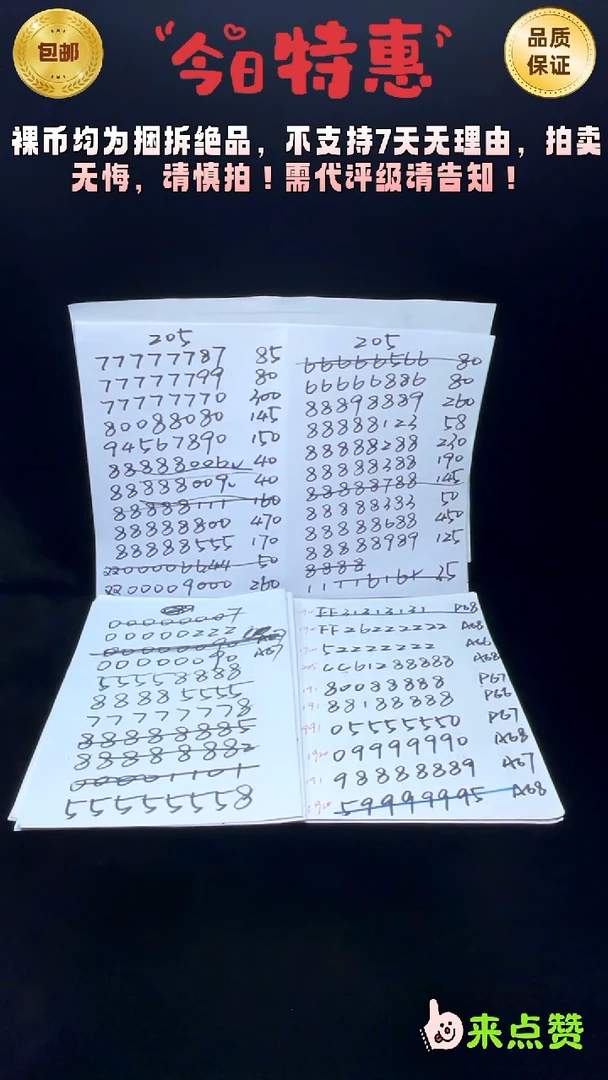 包邮
今日特惠
品质
保证
裸币均为捆拆绝品，不支持7天无理由，拍卖
无悔，请慎拍！需代评级请告知！
205
77777787 85
77777799 80
77777770 300
80088080 145
94567890 150
88888006 40
88888009 40
88888111 160
88888800 470
88888555 170
2200006644 50
220009000 260
205
66666566 80
66666886 80
88898889 260
88888123 58
88888288 230
88888388 190
88888788 145
88888333 50
88888688 450
88888989 125
8888
11116161 25
00000007
00000222
00000090 A67
55558888
88885555
77777778
88888885
88888882
00001101
55555558
FF31313131 P68
FF26222222 A68
52222222 A66
CC61288888 A68
80088888 P67
88188888 P66
05555550 P67
09999990 A68
98888889 A67
59999995 A68
来点赞